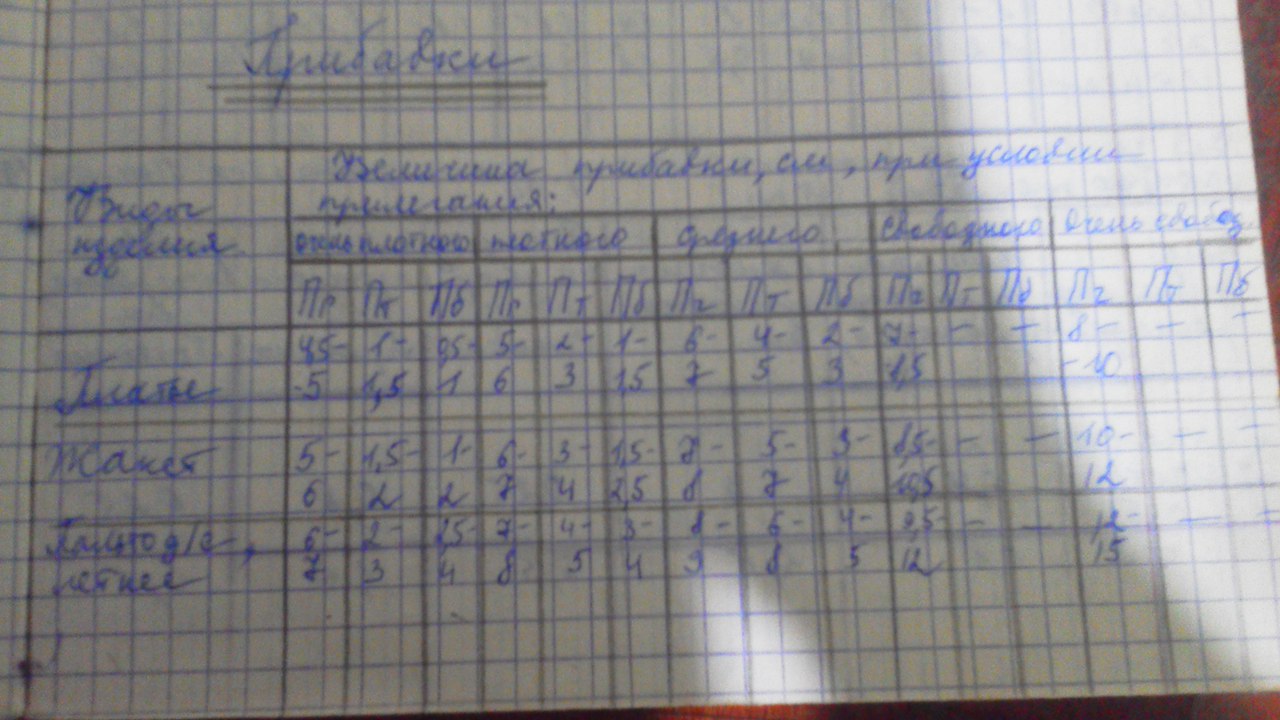 Прибавки
Виды изделия
Величина прибавки, см, при условии
прилегания:
очень плотного плотного среднего свободного очень свобод.
Пг Пт Пб Пг Пт Пб Пг Пт Пб Пг Пт Пб Пг Пт Пб
4,5- 1- 0,5- 5- 2- 1- 6- 4- 2- 7- - - 8- - -
Платье -5 1,5 1 6 3 1,5 7 5 3 -10
Жакет 5- 1,5- 1- 6- 3- 1,5- 7- 5- 3- 8,5- - - 10- - -
6 2 2 7 4 2,5 8 7 4 10,5 12
Пальто д/с-, 6- 2- 7- 4- 3- 8- 6- 4- 9,5- - - 12- - -
летнее 7 3 4 8 5 4 9 8 5 12 15